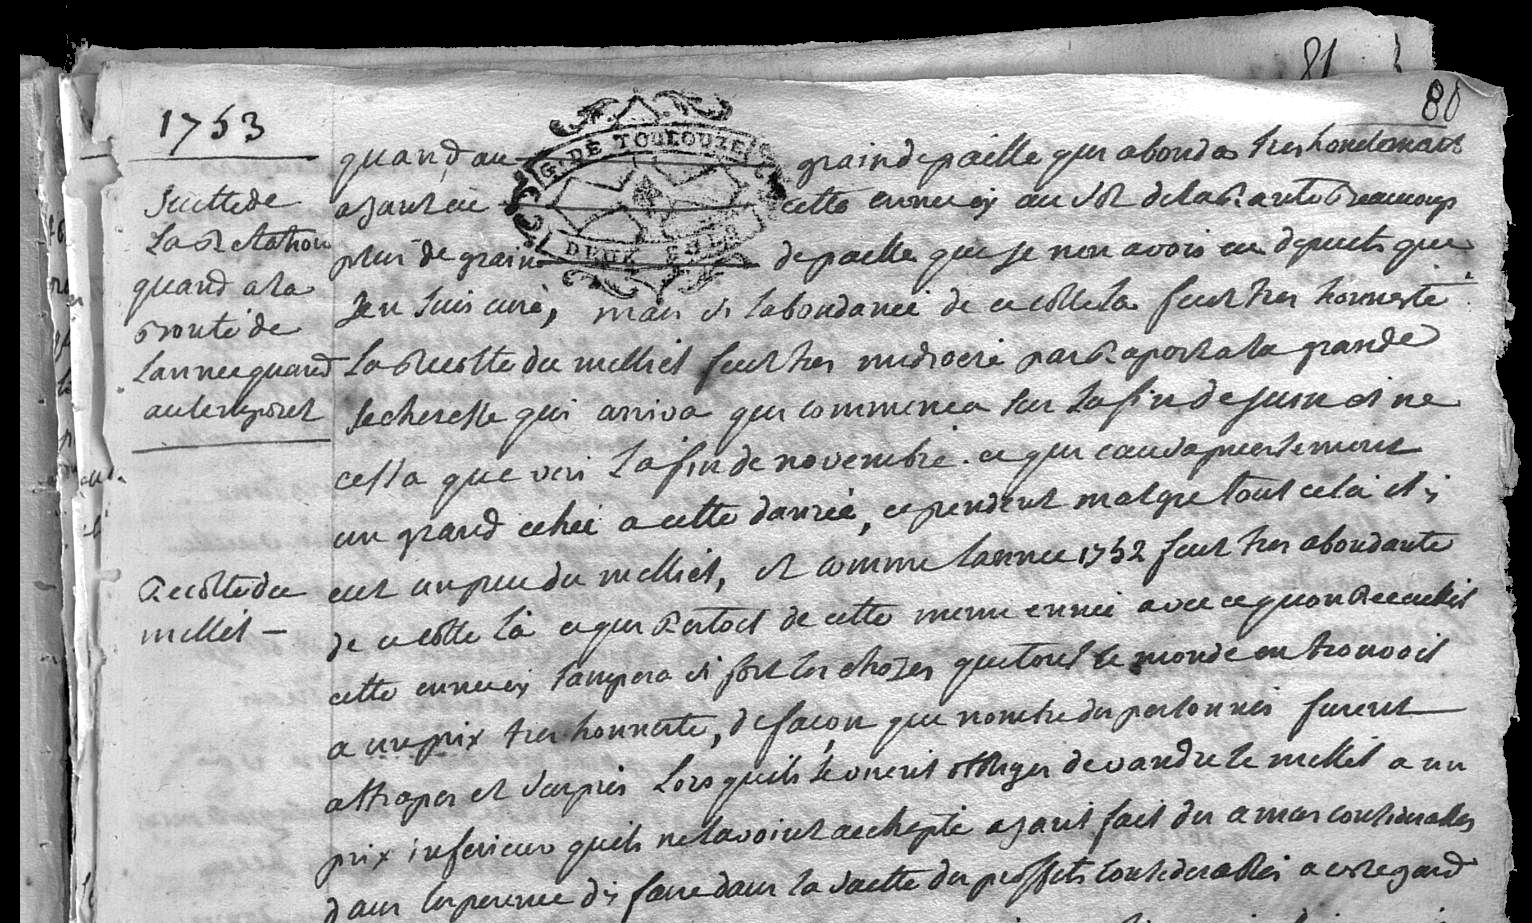 81
80
1753
G. DE TOULOUZE
DEUX SOLS
Suitte de
La Relation
quand a la
Bonté de
Lannee quand
au temporel
Recolte du
millet —
quand au grain de paille qui abonda tres honetemant
ayant eu cette annee y au sol de la beaucoup
plus de grain de paille que je nen avois eu depuits que
Jen suis curé, mais si labondance de ce cotte la feut tres honneste
La Recolte du milliet feut tres mediocre par Raport a la grande
secheresse qui arriva qui commenca sur La fin de juin et ne
cessa que vers La fin de novembre. ce qui causa
un grand echec a cette danrée, cependent malgre tout cela il y
eut un peu du milliet, et comme Lannee 1752 feut tres abondante
de ce cotte là ce qui Restoet de cette meme année avec ce quon Receuillit
cette annee y tampera si fort les chozes que tout le monde en trouvoit
a un prix tres honneste, de façon que nombre des personnes furent
attrapes et surpris Lors quils se virent obliges de vandre le millet a un
prix inferieur quils ne lavoint achepté ayant fait des amas considerables
dans lesperence dy faire dans la suitte des proffits considerables a cest egard